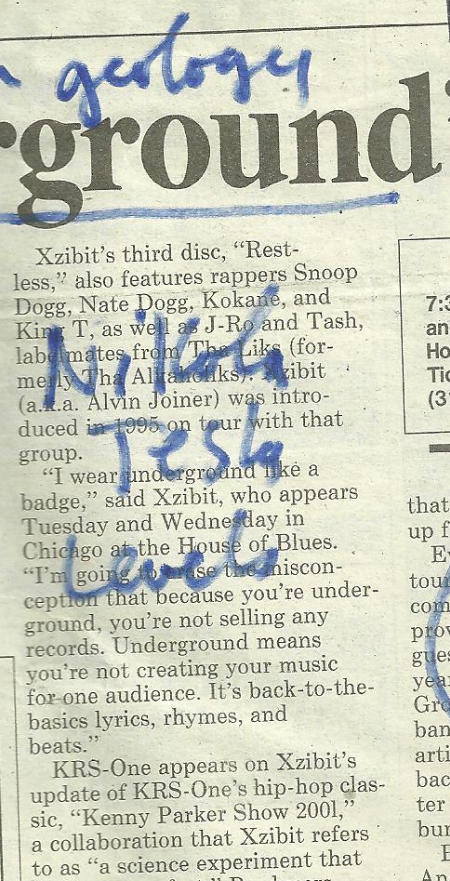 geology
rground
Xzibit's third disc, “Rest-
less,” also features rappers Snoop
Dogg, Nate Dogg, Kokane, and
King T, as well as J-Ro and Tash,
labelmates from Tha Liks (for-
merly Tha Alkaholiks). Xzibit
(a.k.a. Alvin Joiner) was intro-
duced in 1995 on tour with that
group.
“I wear underground like a
badge,” said Xzibit, who appears
Tuesday and Wednesday in
Chicago at the House of Blues.
“I'm going to erase the miscon-
ception that because you're under-
ground, you're not selling any
records. Underground means
you're not creating your music
for one audience. It's back-to-the-
basics lyrics, rhymes, and
beats.”
KRS-One appears on Xzibit's
update of KRS-One's hip-hop clas-
sic, “Kenny Parker Show 2001,”
a collaboration that Xzibit refers
to as “a science experiment that
Nikola
Tesla
Levels
7:3
an
Ho
Tic
(31
that
up f
Ev
tour
com
prov
gues
year
Gro
ban
arti
bac
ter
bur
E
An